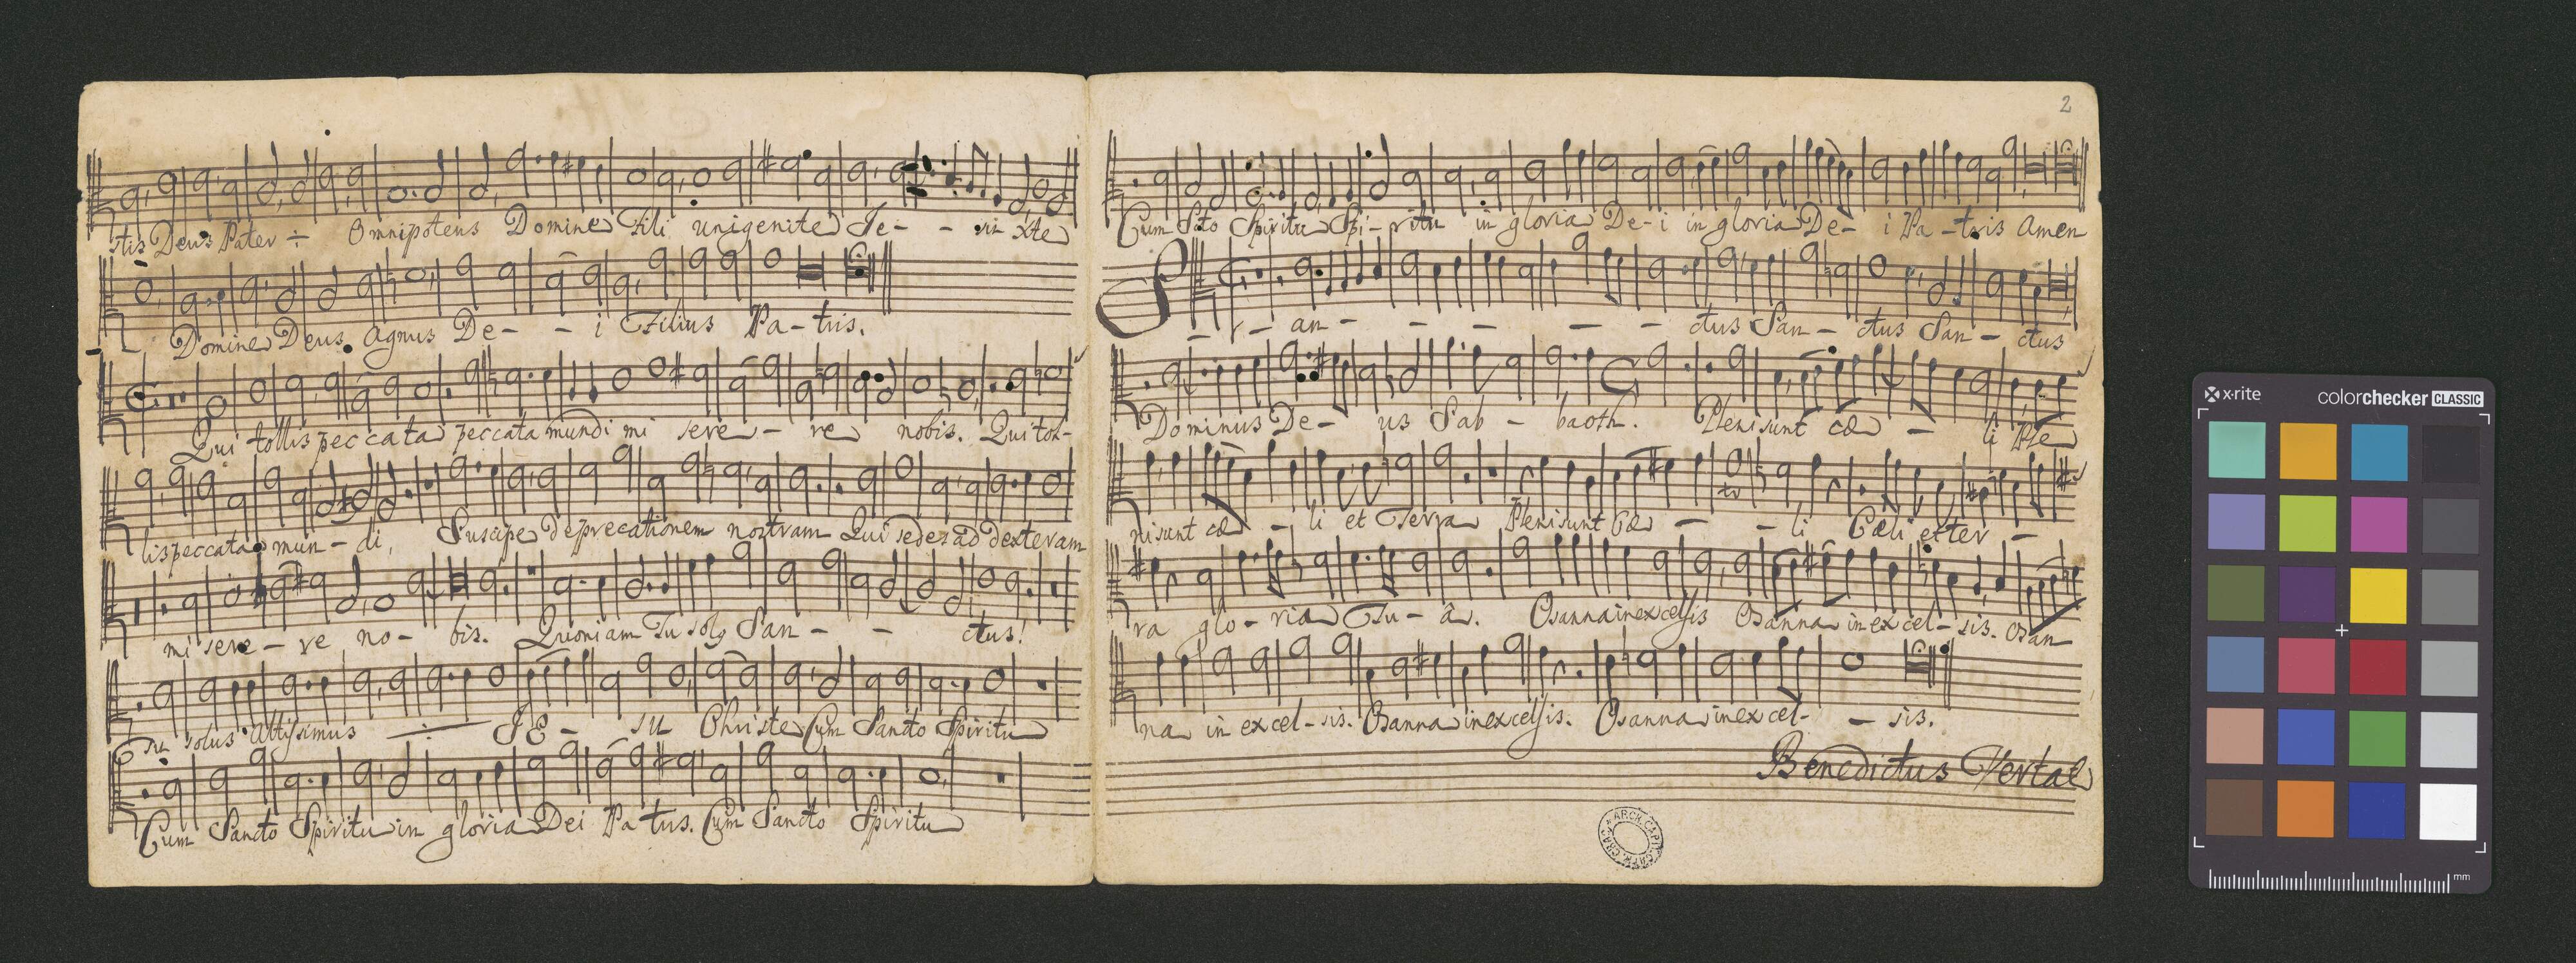 stis Deus Pater ÷ Omnipotens Domine Fili unigenite Je - - su xte
Domine Deus Agnus De - - i Filius Pa - tris.
Qui tollis peccata peccata mundi mi sere - re nobis. Qui tol-
lis peccata mun - di, Suscipe deprecationem nostram Qui sedes ad dexteram
mi sere - re no - bis. Quoniam Tu solq San - - ctus!
Tu solus Altissimus ÷ JE - su Christe Cum Sancto Spiritu
Cum Sancto Spiritu in gloria Dei Pa tris. Cum Sancto Spiritu
2
Cum Scto Spiritu Spi - ritu in gloria De - i in gloria De - i Pa - tris Amen
S - an - - - - - ctus San - ctus San - ctus
Dominus De - us Sab - baoth. Pleni sunt cæ - li Ple
ni sunt cæ - li et Terra Pleni sunt Cæ - - li Cæli et ter -
ra glo - ria Tu - a. Osanna in excelsis Osanna in ex cel - sis. Osan
na in ex cel - sis. Osanna in excelsis. Osanna in excel - - sis.
Benedictus Vertae
ARCH. CAPIT. CATH. CRAC.
x·rite colorchecker CLASSIC
mm